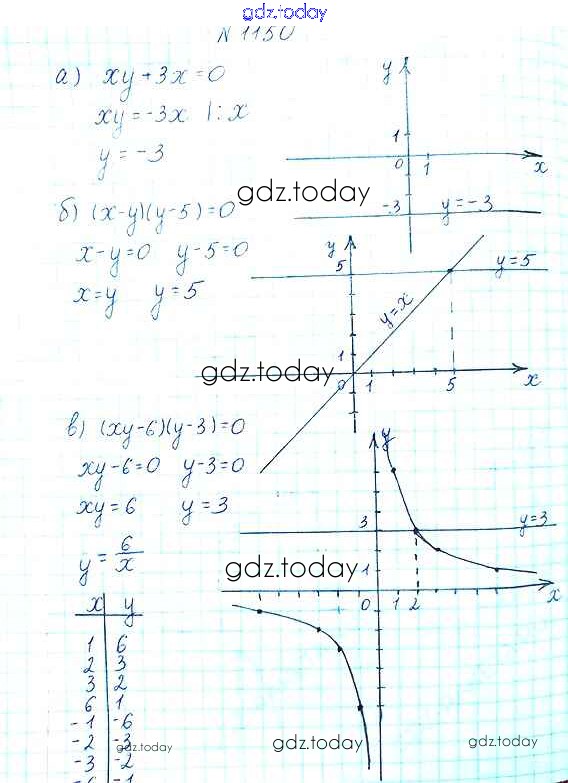 gdz.today
N 1150
а) xy + 3x = 0
xy = -3x |: x
y = -3
y
1
0 1 x
-3 y = -3
gdz.today
б) (x-y)(y-5) = 0
x-y=0 y-5=0
x=y y=5
y
5 y=5
y=x
1
0 1 5 x
gdz.today
в) (xy-6)(y-3)=0
xy-6=0 y-3=0
xy=6 y=3
y = 6/x
y
3 y=3
1
0 1 2 x
gdz.today
x y
1 6
2 3
3 2
6 1
-1 -6
-2 -3
-3 -2
-6 -1
gdz.today
gdz.today
gdz.today